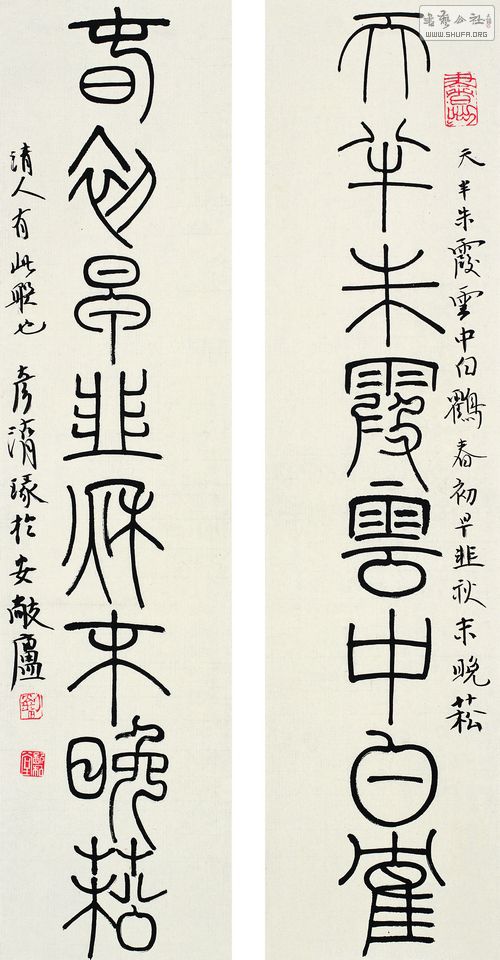 書藝公社
WWW.SHUFA.ORG
天半朱霞雲中白鸖春初早韭秋末晚菘
天半朱霞雲中白隺
春初早韭秋末晚菘
清人有此聯也 彥於安敲廬